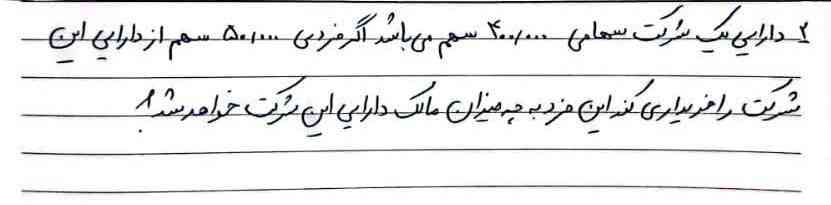 ۲ دارایی یک شرکت سهامی ۴۰۰،۰۰۰ سهم می باشد اگر فردی ۵۰،۰۰۰ سهم از دارایی این
شرکت را خریداری کند این فرد به چه میزان مالک دارایی این شرکت خواهد شد؟